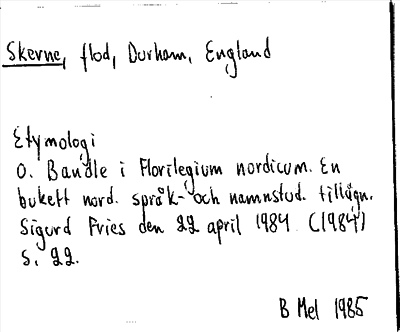 Skerne, flod, Durham, England
Etymologi
O. Bandle i Florilegium nordicum. En
bukett nord. språk- och namnstud. tillägn.
Sigurd Fries den 22 april 1984 (1984)
s. 22.
B Mel 1985